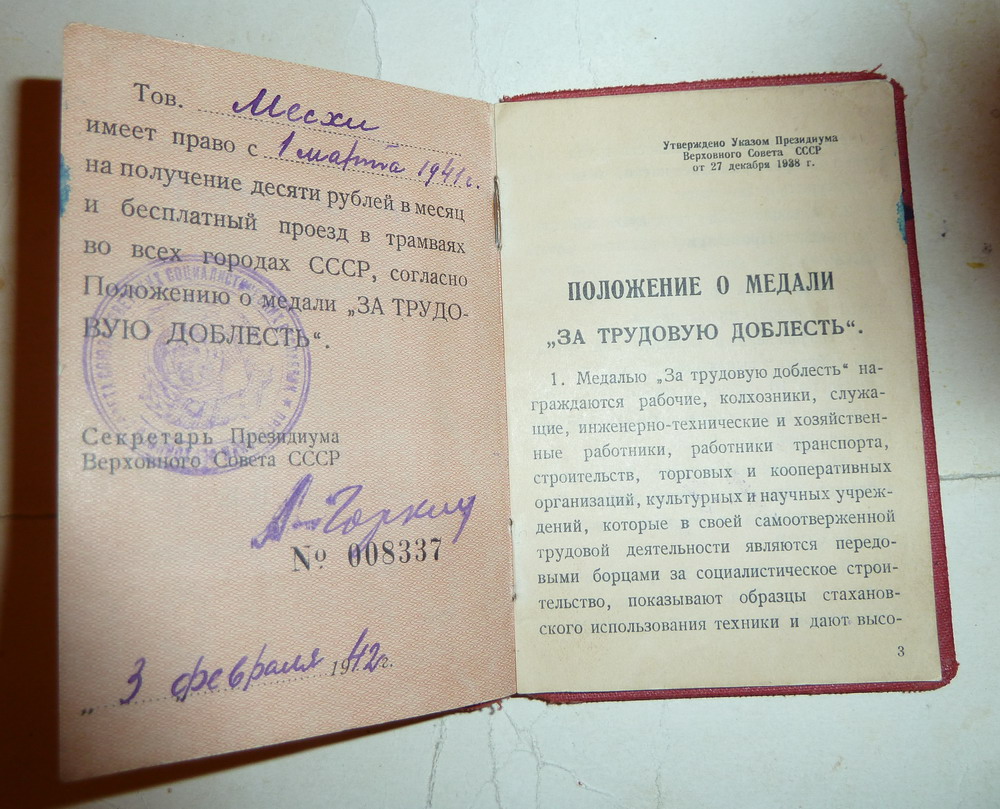 Тов. Месхи
имеет право с 1 марта 1941 г.
на получение десяти рублей в месяц
и бесплатный проезд в трамваях
во всех городах СССР, согласно
Положению о медали „ЗА ТРУДО-
ВУЮ ДОБЛЕСТЬ“.
Секретарь Президиума
Верховного Совета СССР
А. Горкин
№ 008337
„ 3 февраля 1942 г.
Утверждено Указом Президиума
Верховного Совета СССР
от 27 декабря 1938 г.
ПОЛОЖЕНИЕ О МЕДАЛИ
„ЗА ТРУДОВУЮ ДОБЛЕСТЬ“.
1. Медалью „За трудовую доблесть“ на-
граждаются рабочие, колхозники, служа-
щие, инженерно-технические и хозяйствен-
ные работники, работники транспорта,
строительств, торговых и кооперативных
организаций, культурных и научных учреж-
дений, которые в своей самоотверженной
трудовой деятельности являются передо-
выми борцами за социалистическое строи-
тельство, показывают образцы стаханов-
ского использования техники и дают высо-
3